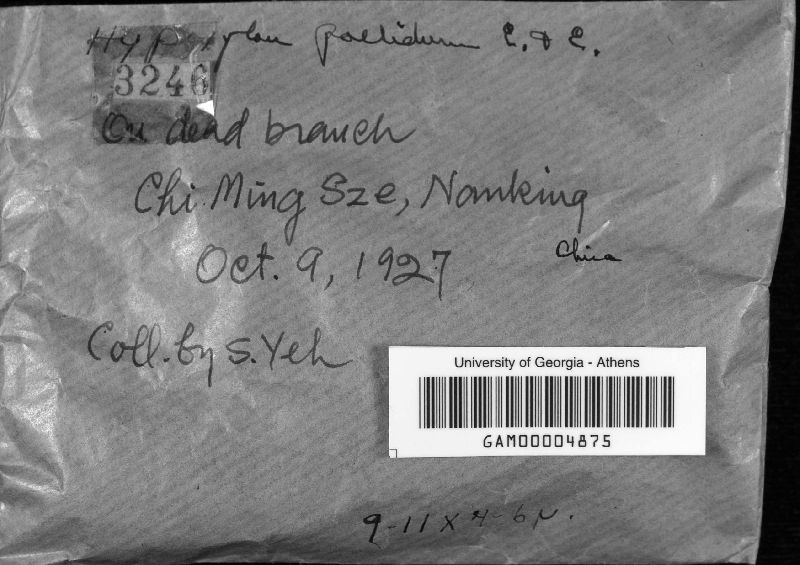 Hypoxylon pallidum E. & E.
3246
On dead branch
Chi Ming Sze, Nanking
China
Oct. 9, 1927
Coll. by S. Yeh
University of Georgia - Athens
GAM00004875
9-11 x 4-6µ.